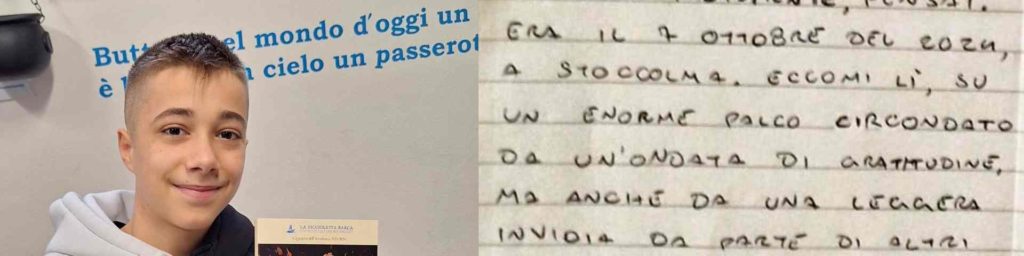 Butt el mondo d'oggi un
è l n cielo un passerot
LA RICONDITA BARCA
ENTE, PENSAI.
ERA IL 7 OTTOBRE DEL 2024,
A STOCCOLMA. ECCOMI LÌ, SU
UN ENORME PALCO CIRCONDATO
DA UN'ONDATA DI GRATITUDINE,
MA ANCHE DA UNA LEGGERA
INVIDIA DA PARTE DI ALTRI